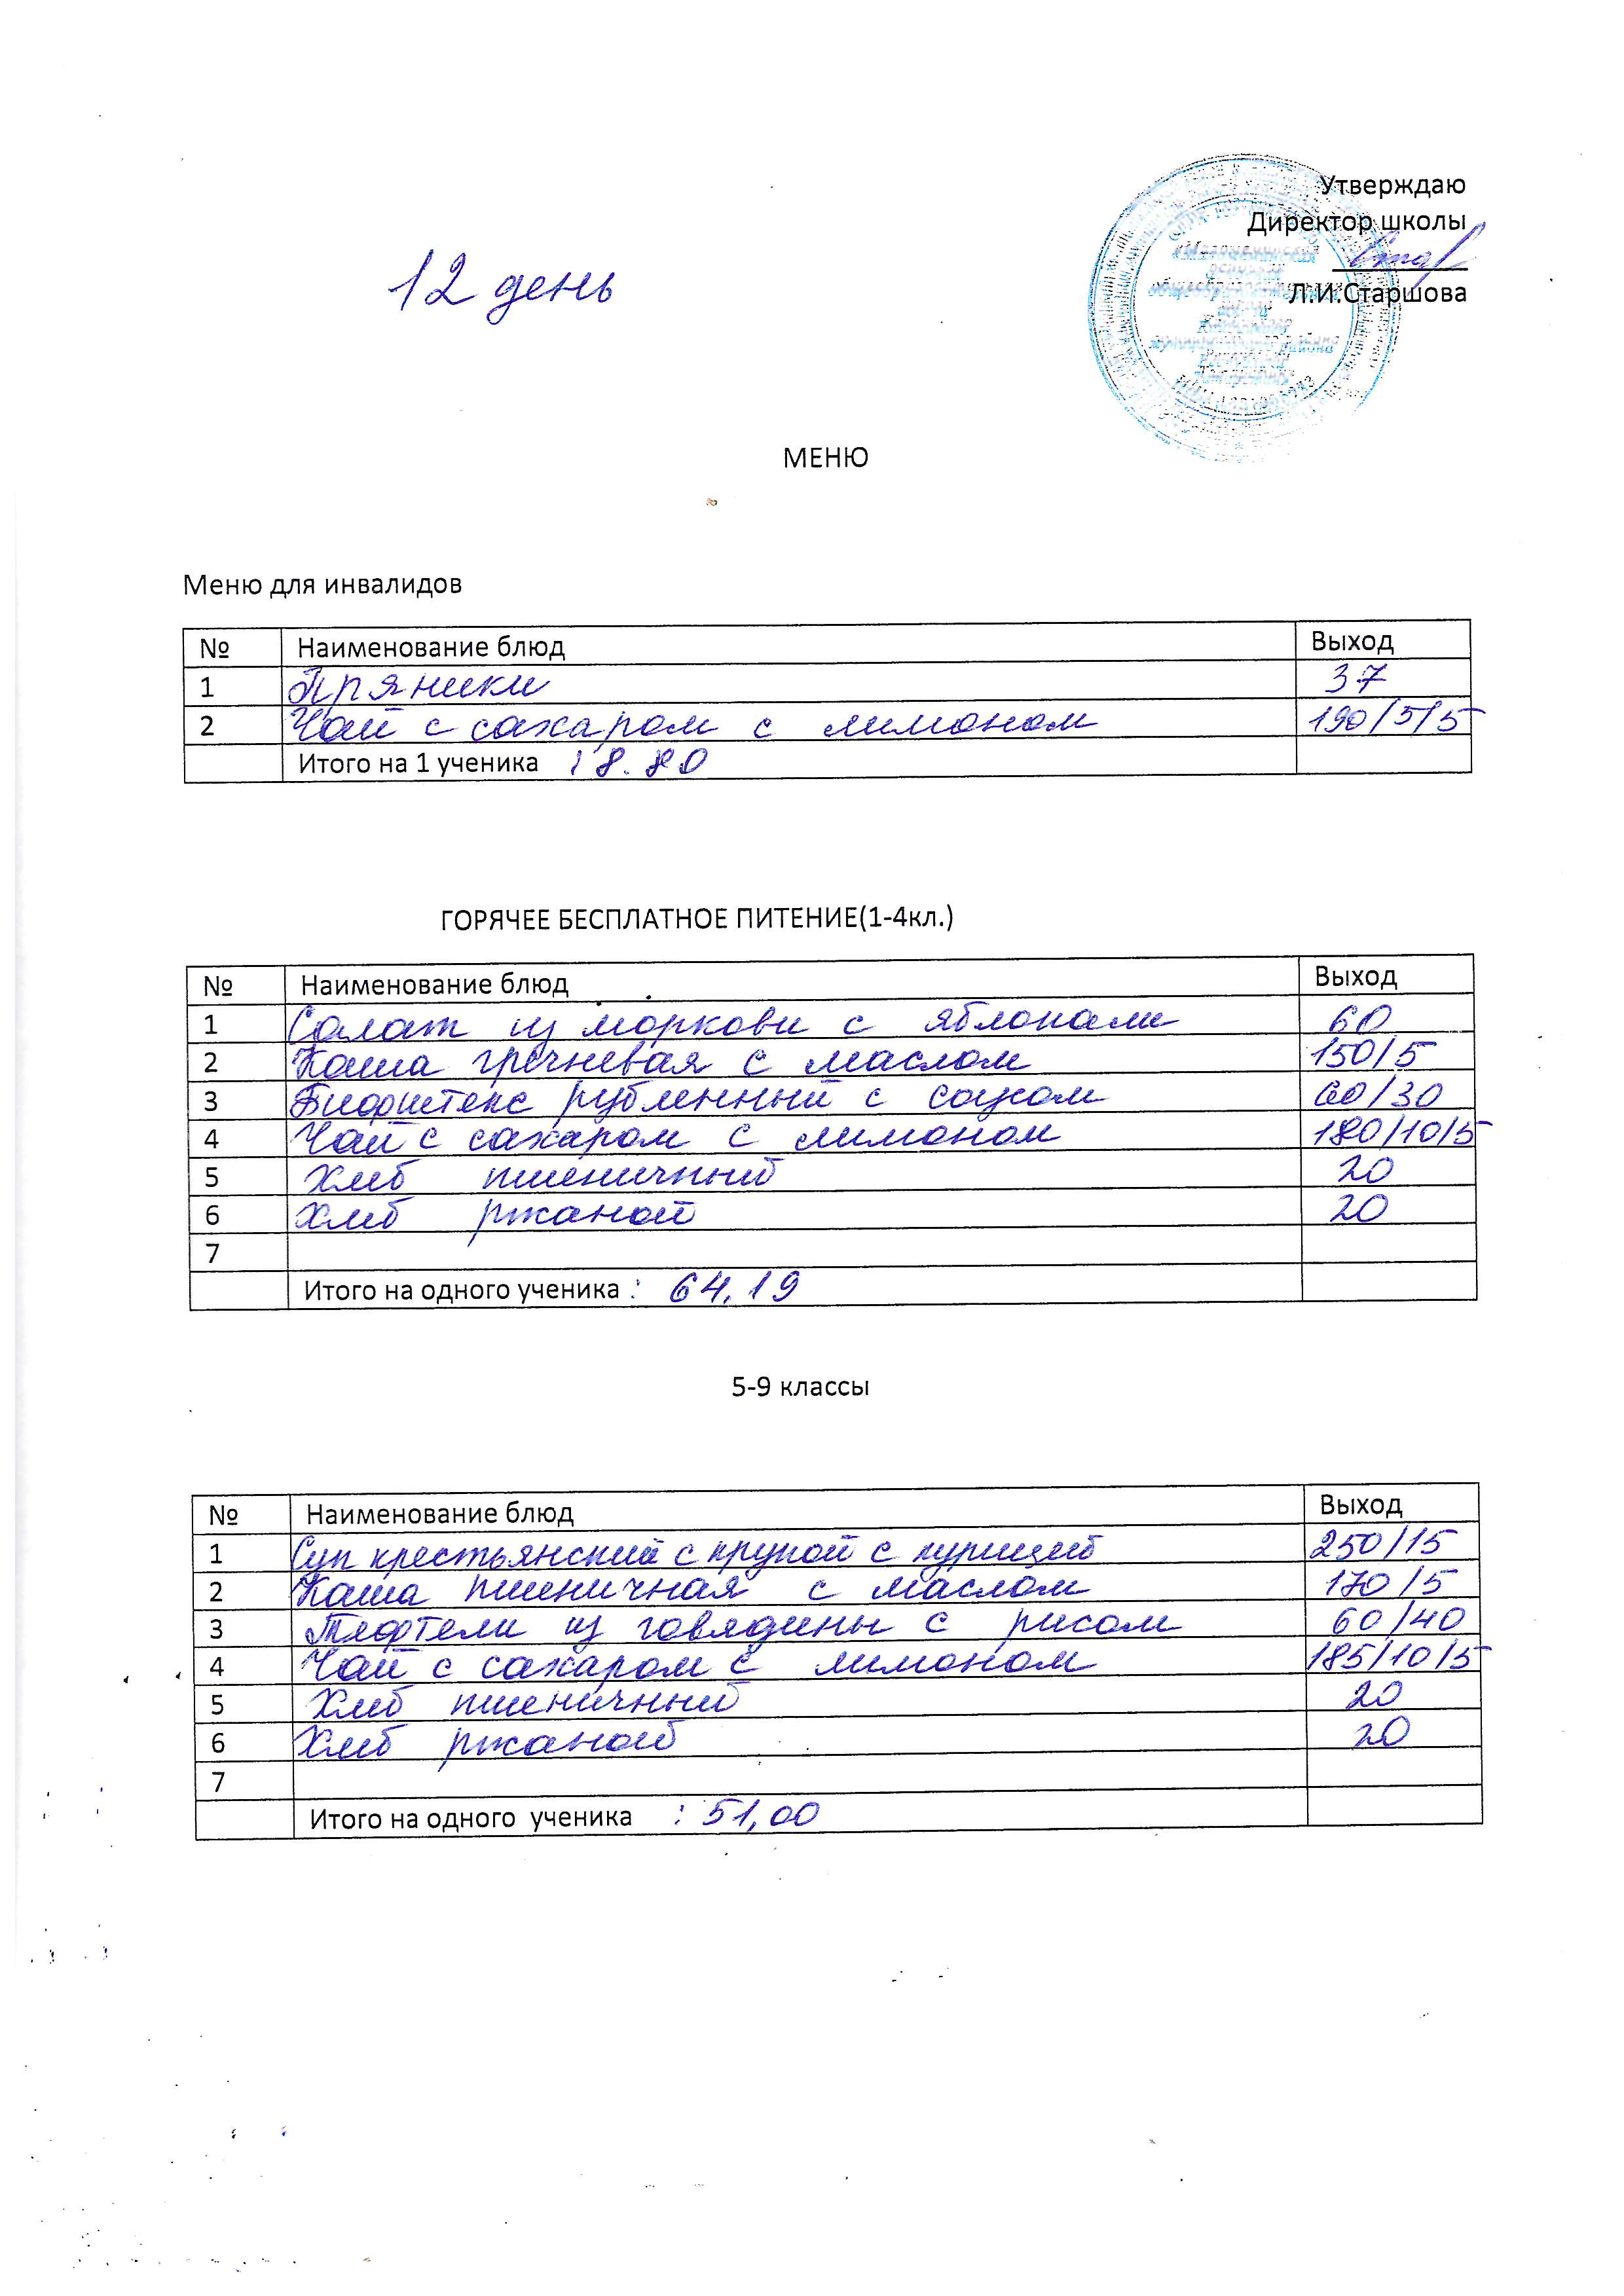 Утверждаю
Директор школы
12 день
Л.И.Старшова
МЕНЮ
Меню для инвалидов
№ Наименование блюд Выход
1 Пряники 37
2 Чай с сахаром с лимоном 190/5/5
Итого на 1 ученика 18.80
ГОРЯЧЕЕ БЕСПЛАТНОЕ ПИТЕНИЕ(1-4кл.)
№ Наименование блюд Выход
1 Салат из моркови с яблоками 60
2 Каша гречневая с маслом 150/5
3 Бифштекс рубленный с соусом 60/30
4 Чай с сахаром с лимоном 180/10/5
5 Хлеб пшеничный 20
6 Хлеб ржаной 20
7
Итого на одного ученика : 64.19
5-9 классы
№ Наименование блюд Выход
1 Суп крестьянский с крупой с курицей 250/15
2 Каша пшеничная с маслом 170/5
3 Тефтели из говядины с рисом 60/40
4 Чай с сахаром с лимоном 185/10/5
5 Хлеб пшеничный 20
6 Хлеб ржаной 20
7
Итого на одного ученика : 51,00